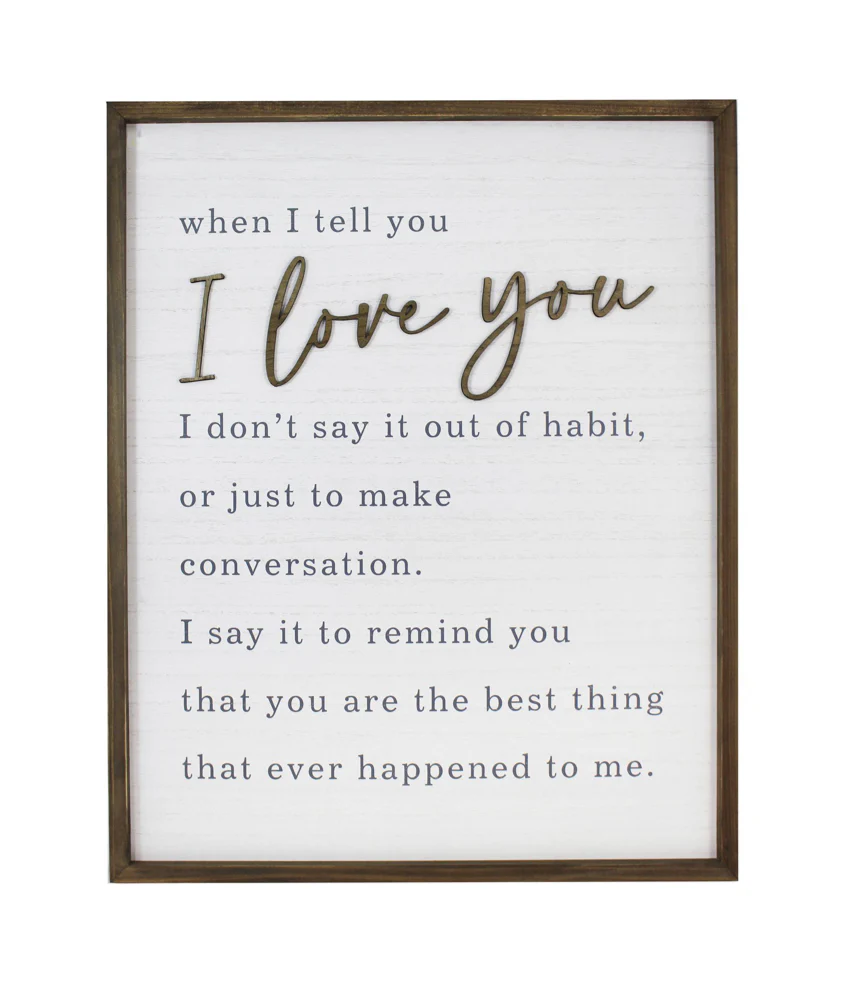 when I tell you
I love you
I don’t say it out of habit,
or just to make
conversation.
I say it to remind you
that you are the best thing
that ever happened to me.